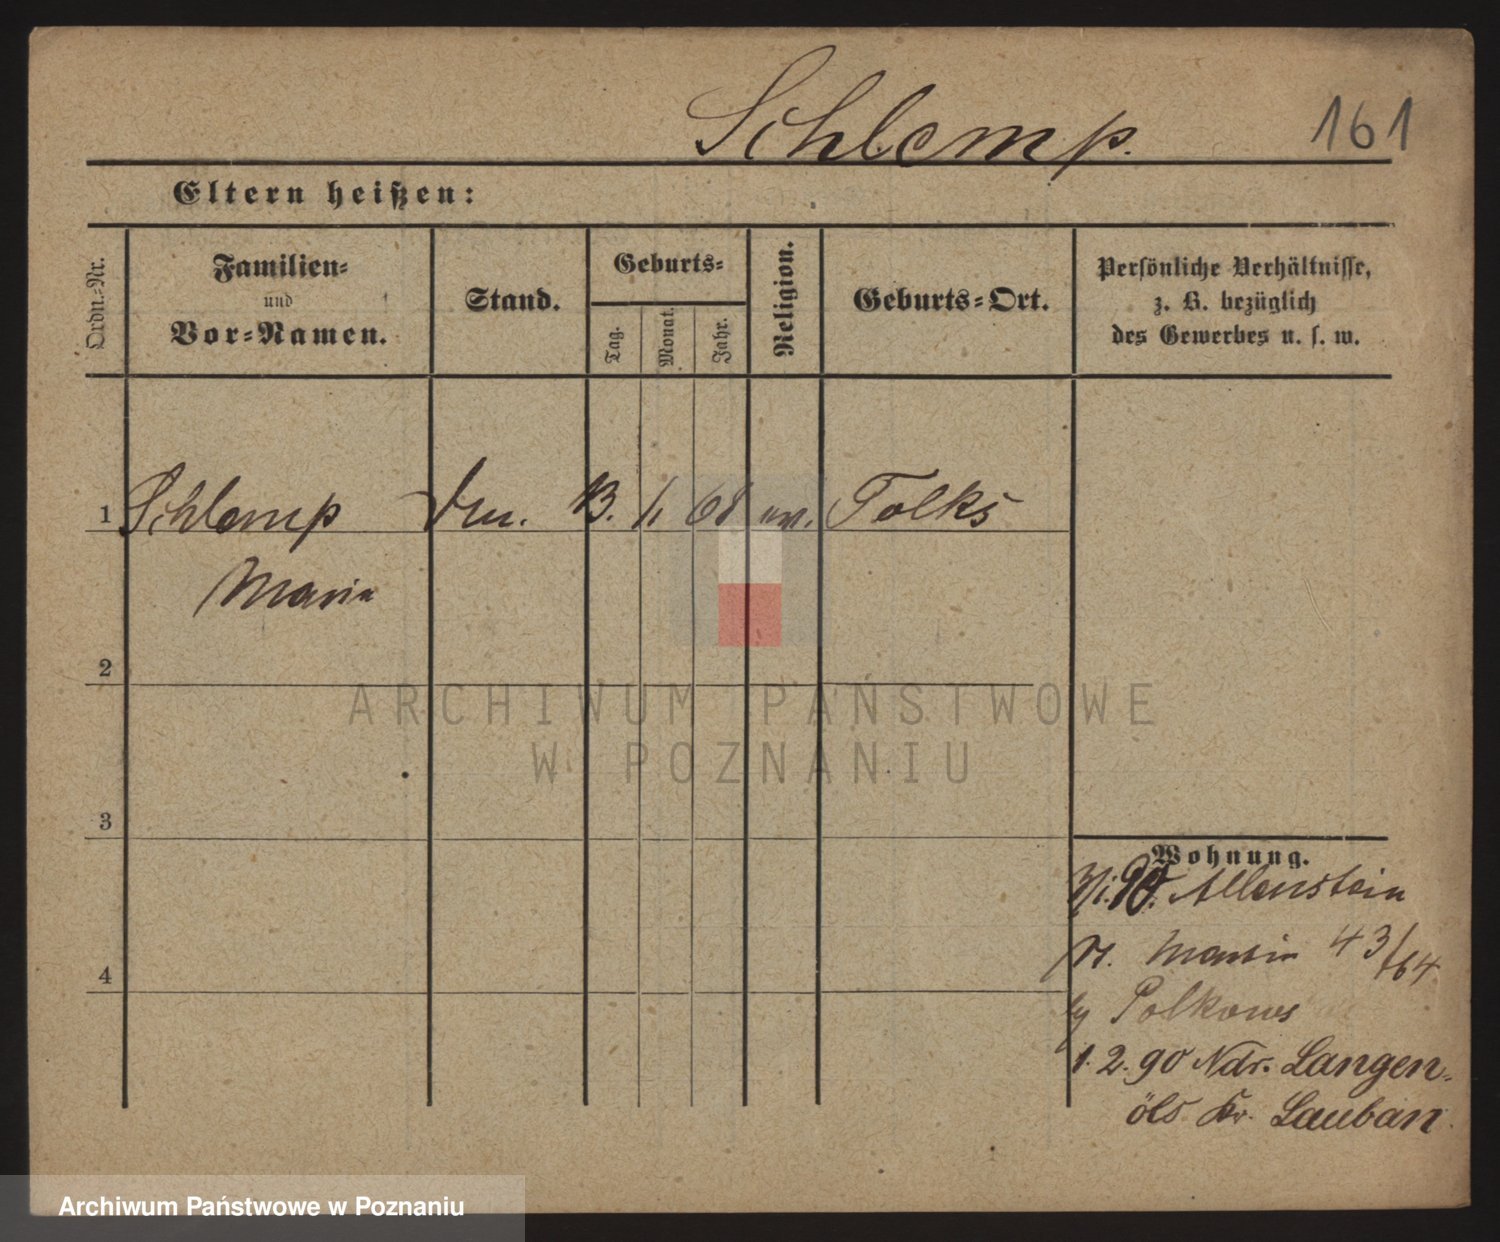 Schlemp.
161
Eltern heißen:
Ordn.-Nr.
Familien-
und
Vor-Namen.
Stand.
Geburts-
Tag.
Monat.
Jahr.
Religion.
Geburts-Ort.
Persönliche Verhältnisse,
z. B. bezüglich
des Gewerbes u. s. w.
1 Schlemp 13. 68 ev. Tolks
Maria
2
3
4
Wohnung.
90. Allenstein
St. Martin 43/64
Polkows
1. 2. 90 Ndr. Langen-
öls Kr. Lauban.
ARCHIWUM PAŃSTWOWE
W POZNANIU
Archiwum Państwowe w Poznaniu